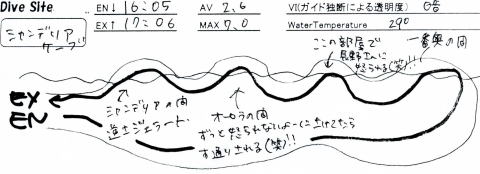 Dive Site
シャンデリア
ケーブ
EN↓ 16:05
EX↑ 17:06
AV 2.6
MAX 7.0
VI(ガイド独断による透明度) 暗
WaterTemperature 29°
この部屋で
長野さんに
怒られる(笑)!!
一番奥の間
EX
EN
シャンデリアの間
オーロラの間
ずっと怒られないよーに上げてたら
す通りされる(笑)!!